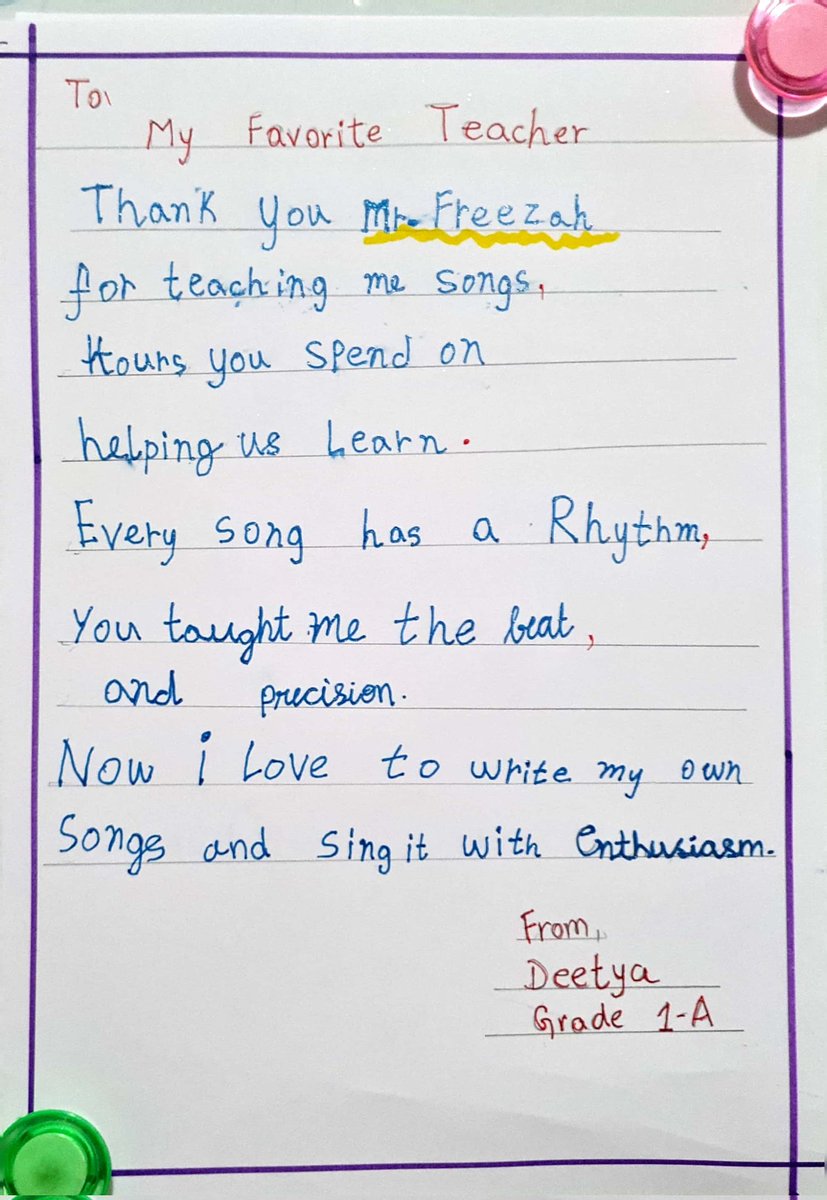 To,
My Favorite Teacher
Thank you Mr. Freezah
for teaching me songs,
Hours you spend on
helping us Learn.
Every song has a Rhythm,
You taught me the beat,
and precision.
Now i Love to write my own
Songs and Sing it with Enthusiasm.
From,
Deetya
Grade 1-A